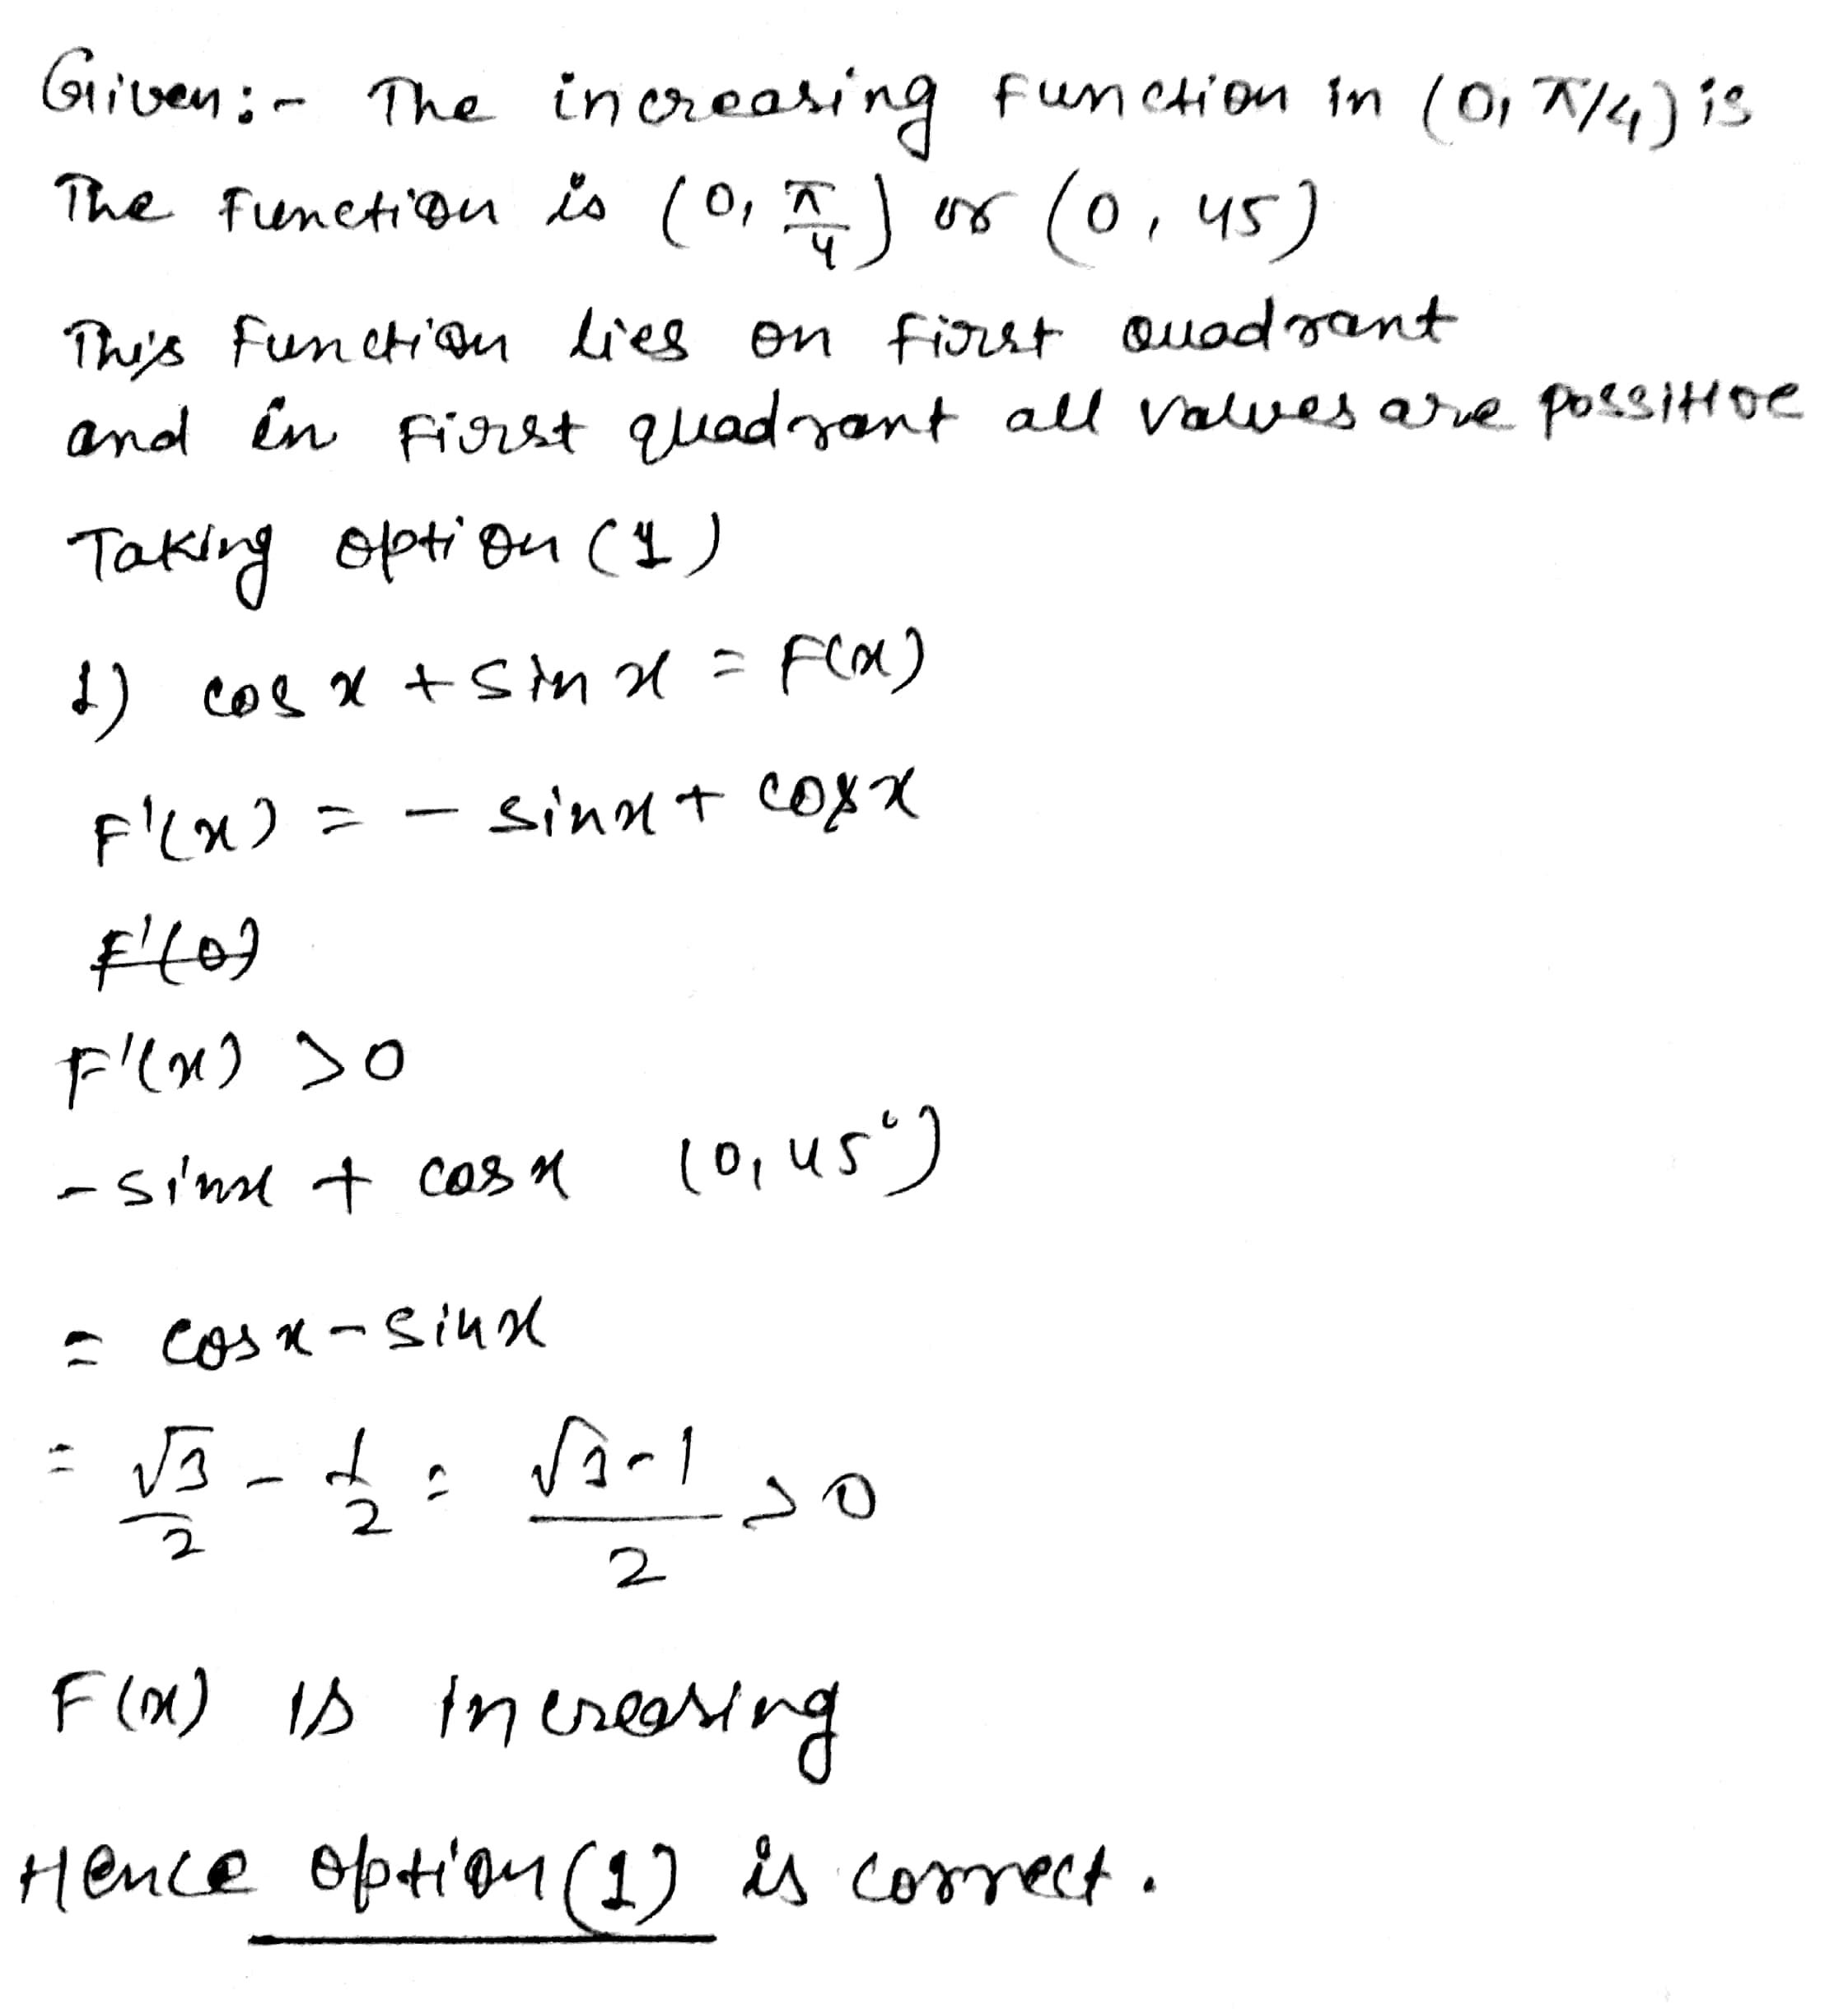 Given:- The increasing function in (0, π/4) is
The function is (0, π/4) or (0, 45)
This function lies on first quadrant
and in first quadrant all values are possitive
Taking option (1)
1) cos x + sin x = F(x)
F'(x) = - sin x + cos x
F'(0)
F'(x) > 0
- sin x + cos x (0, 45°)
= cos x - sin x
= √3/2 - 1/2 = √3-1/2 > 0
F(x) is increasing
Hence option (1) is correct.